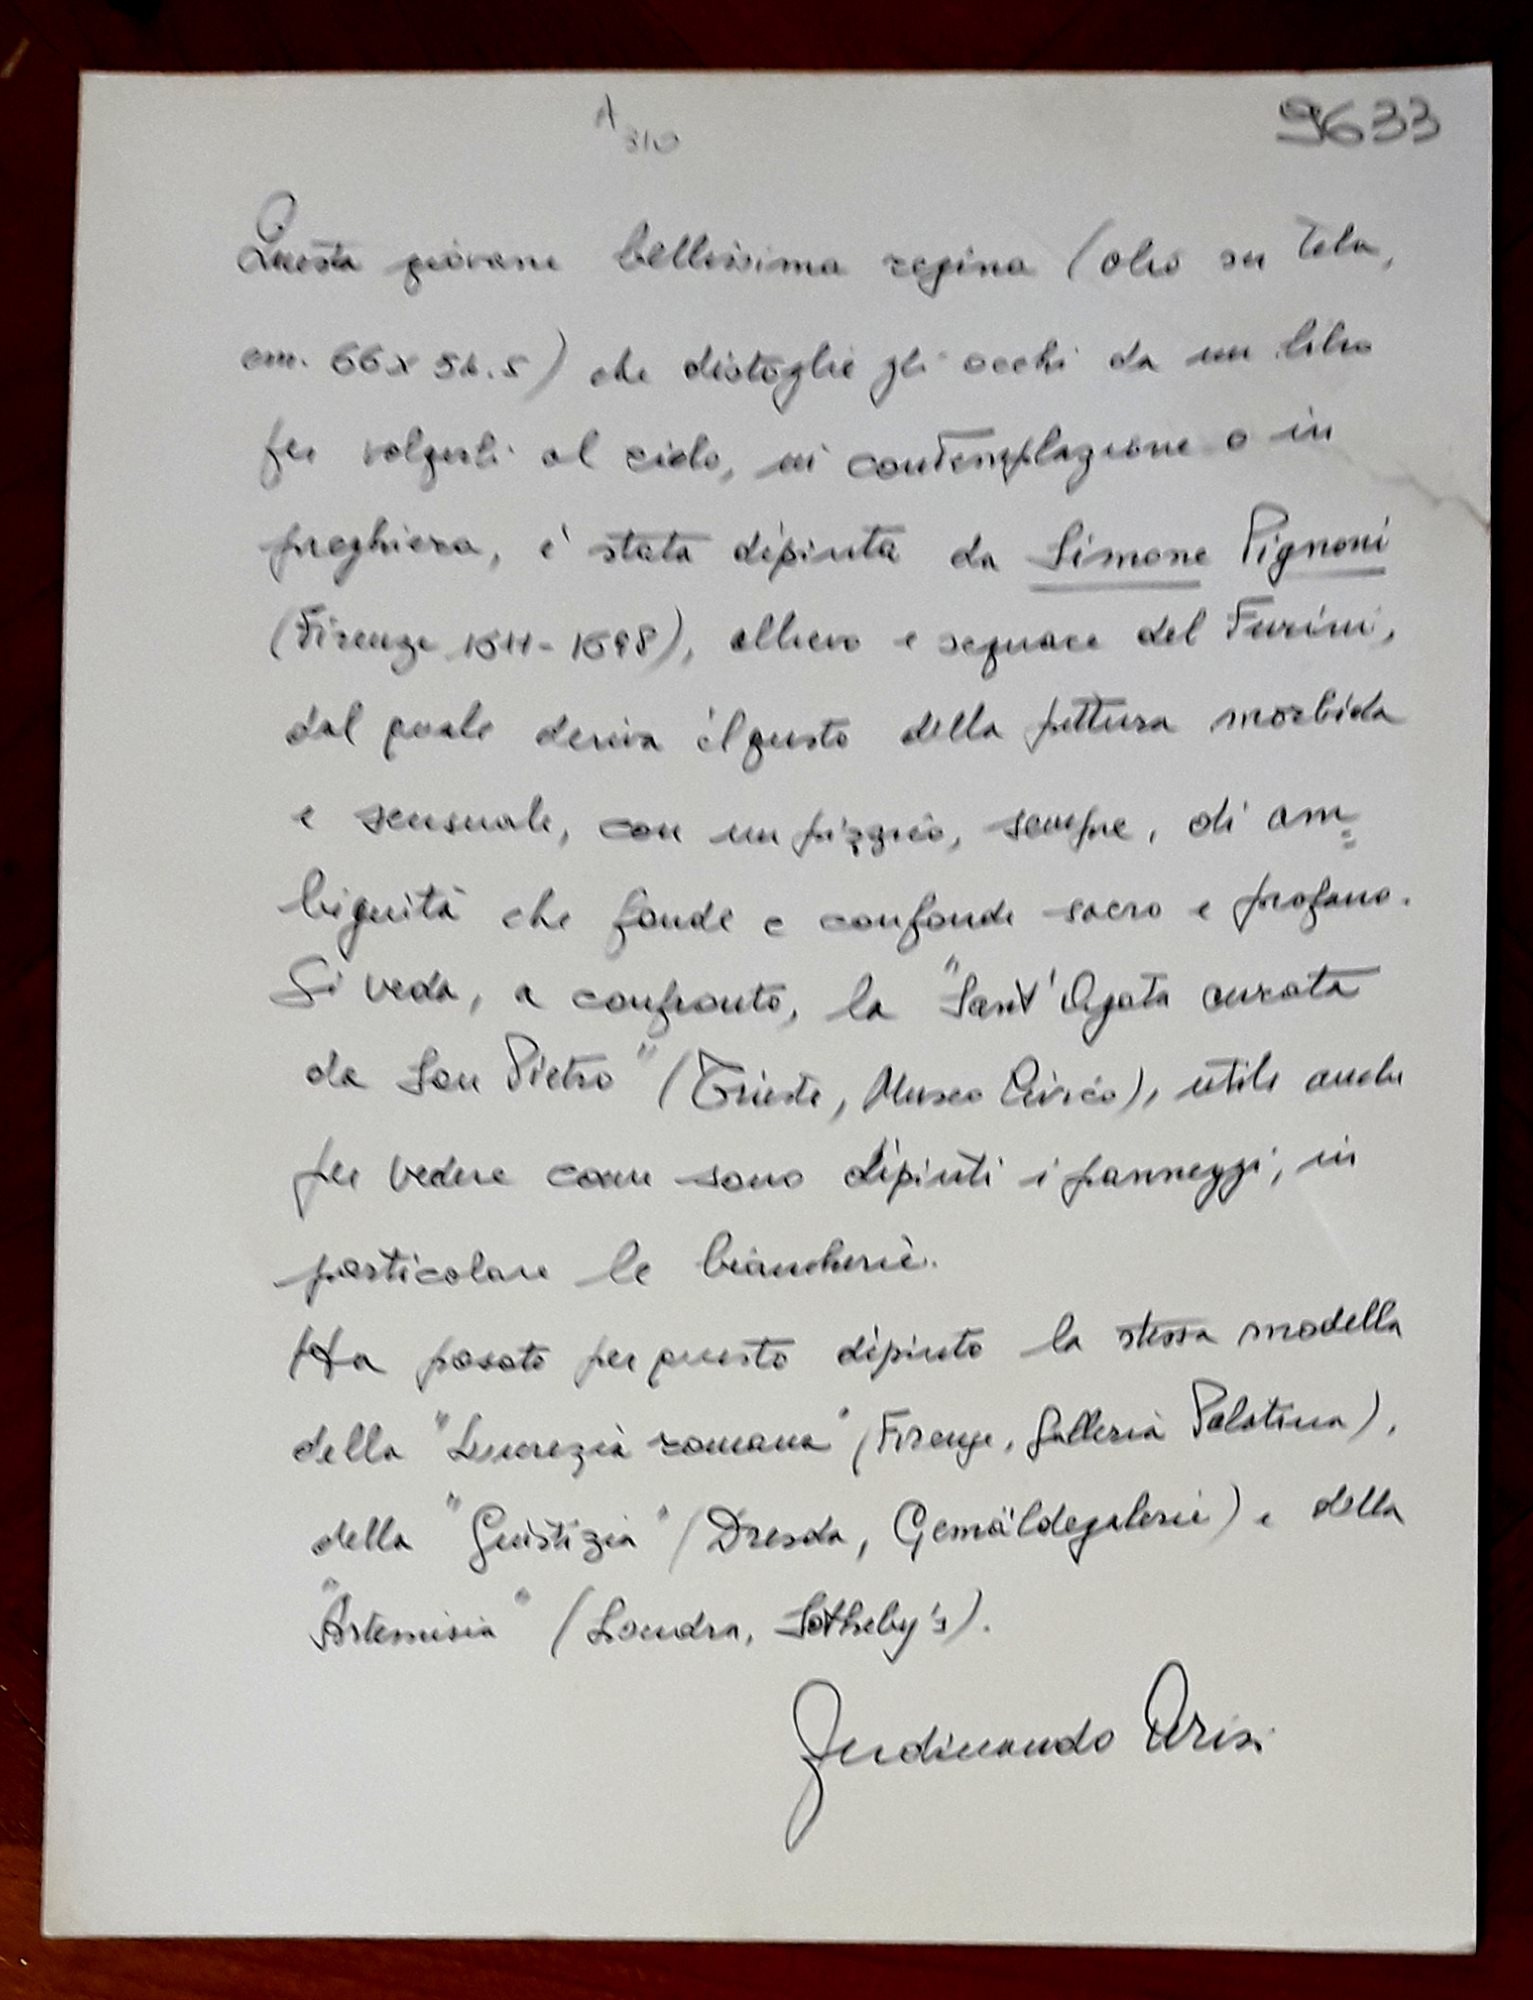 A
310
9633
Questa giovane bellissima regina (olio su tela,
cm. 66x54.5) che distoglie gli occhi da un libro
per volgerli al cielo, in contemplazione o in
preghiera, è stata dipinta da Simone Pignoni
(Firenze 1611-1698), allievo e seguace del Furini,
dal quale deriva il gusto della pittura morbida
e sensuale, con un pizzico, sempre, di am=
biguità che fonde e confonde sacro e profano.
Si veda, a confronto, la "Sant'Agata curata
da San Pietro" (Trieste, Museo Civico), utile anche
per vedere come sono dipinti i panneggi, in
particolare le biancherie.
Ha posato per questo dipinto la stessa modella
della "Lucrezia romana" (Firenze, Galleria Palatina),
della "Giustizia" (Dresda, Gemäldegalerie) e della
"Artemisia" (Londra, Sotheby's).
Ferdinando Arisi